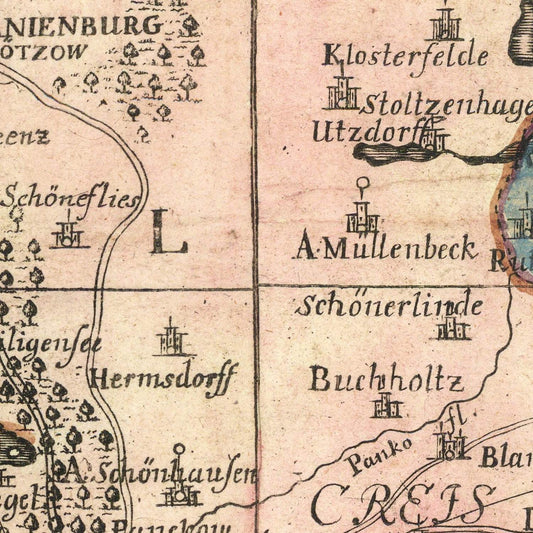 NIENBURG
ÖTZOW
Klosterfelde
Stoltzenhage
Utzdorff
eenz
Schöneflies
L
A. Müllenbeck
Ru
Schönerlinde
ligensee
Hermsdorff
Buchholtz
Panko fl.
Blan
A. Schönhausen
CREIS
gel
Panckow